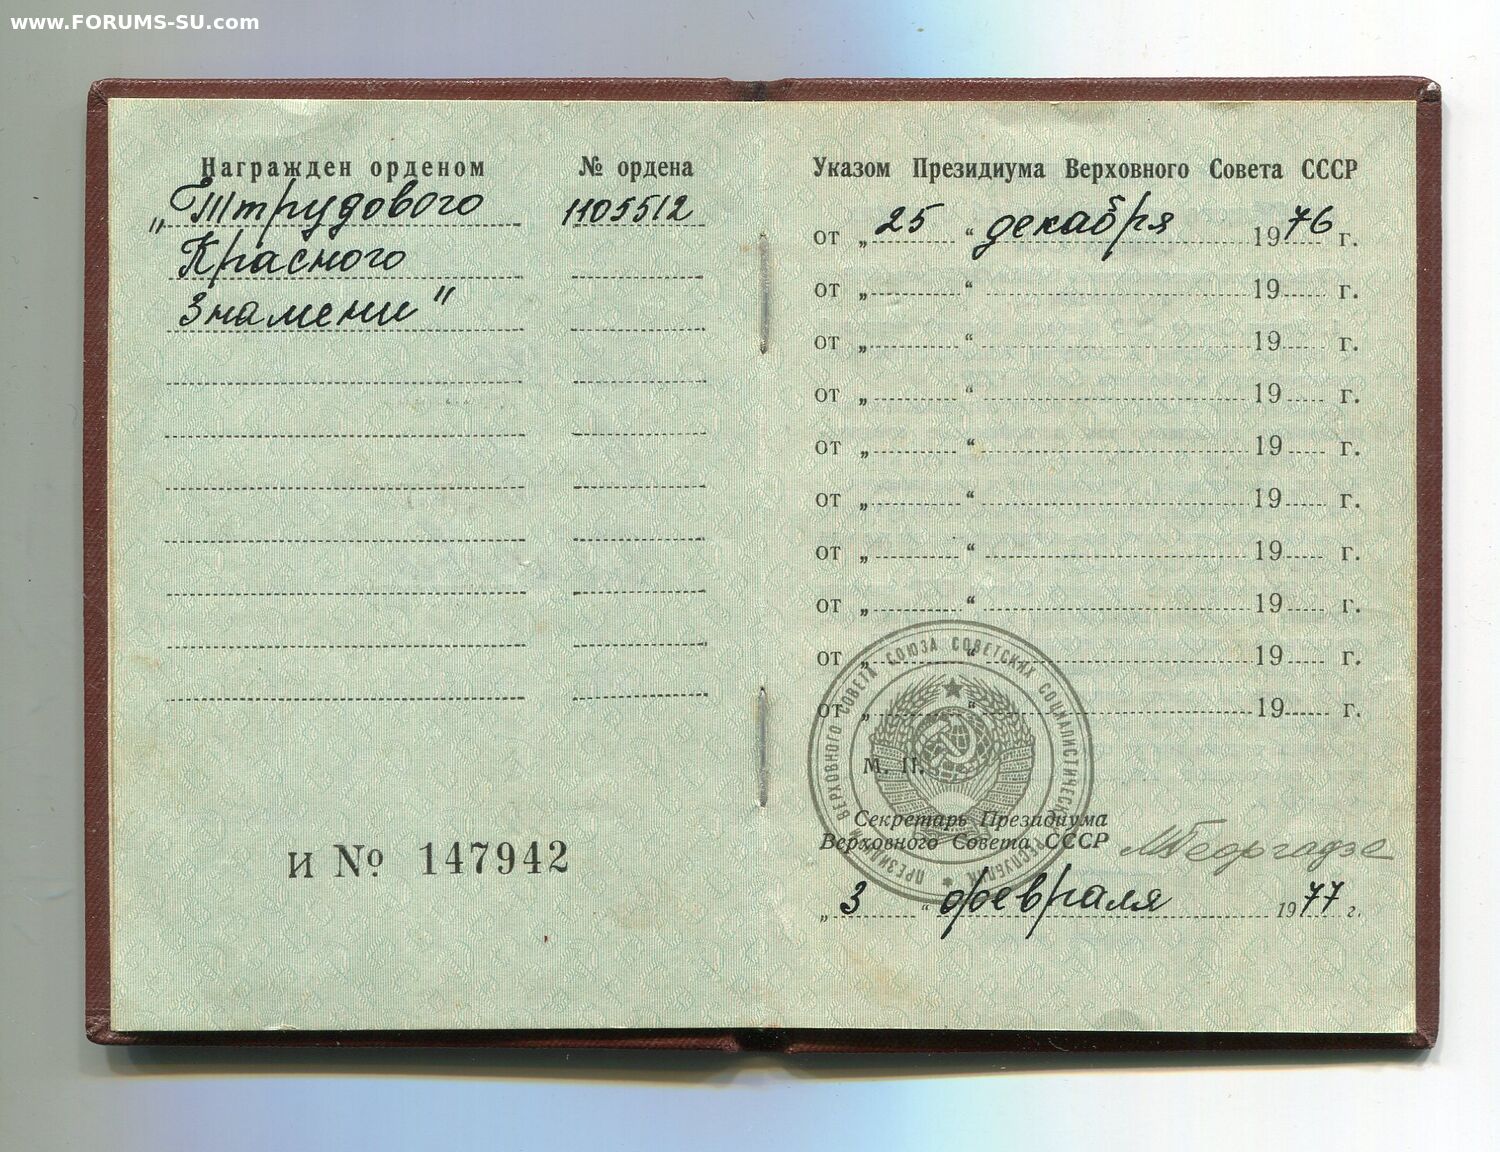 www.FORUMS-SU.com
Награжден орденом № ордена
„Трудового 1105512
Красного
Знамени"
и № 147942
Указом Президиума Верховного Совета СССР
от „25“ декабря 1976 г.
от „ “ 19 г.
от „ “ 19 г.
от „ “ 19 г.
от „ “ 19 г.
от „ “ 19 г.
от „ “ 19 г.
от „ “ 19 г.
от „ “ 19 г.
от „ “ 19 г.
ПРЕЗИДИУМ ВЕРХОВНОГО СОВЕТА СОЮЗА СОВЕТСКИХ СОЦИАЛИСТИЧЕСКИХ РЕСПУБЛИК
М. П.
Секретарь Президиума
Верховного Совета СССР МГеоргадзе
„3“ февраля 1977 г.